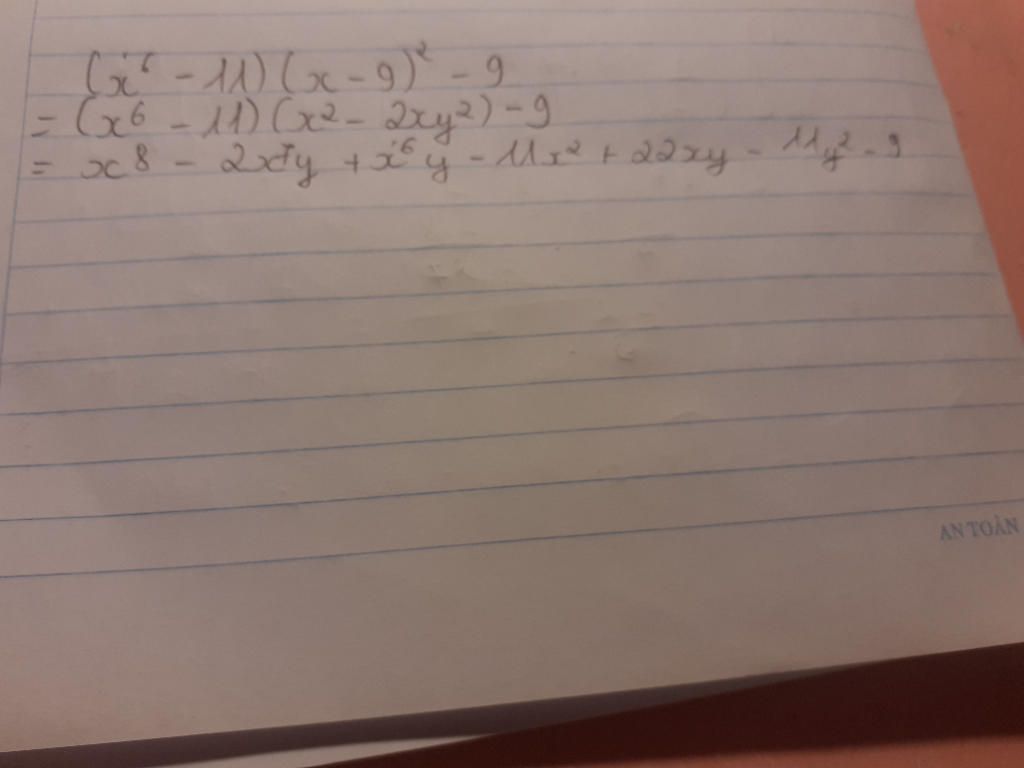 (x⁶ - 11)(x - 9)² - 9
= (x⁶ - 11)(x² - 2xy²) - 9
= x⁸ - 2x⁷y + x⁶y - 11x² + 22xy - 11y² - 9
AN TOÀN